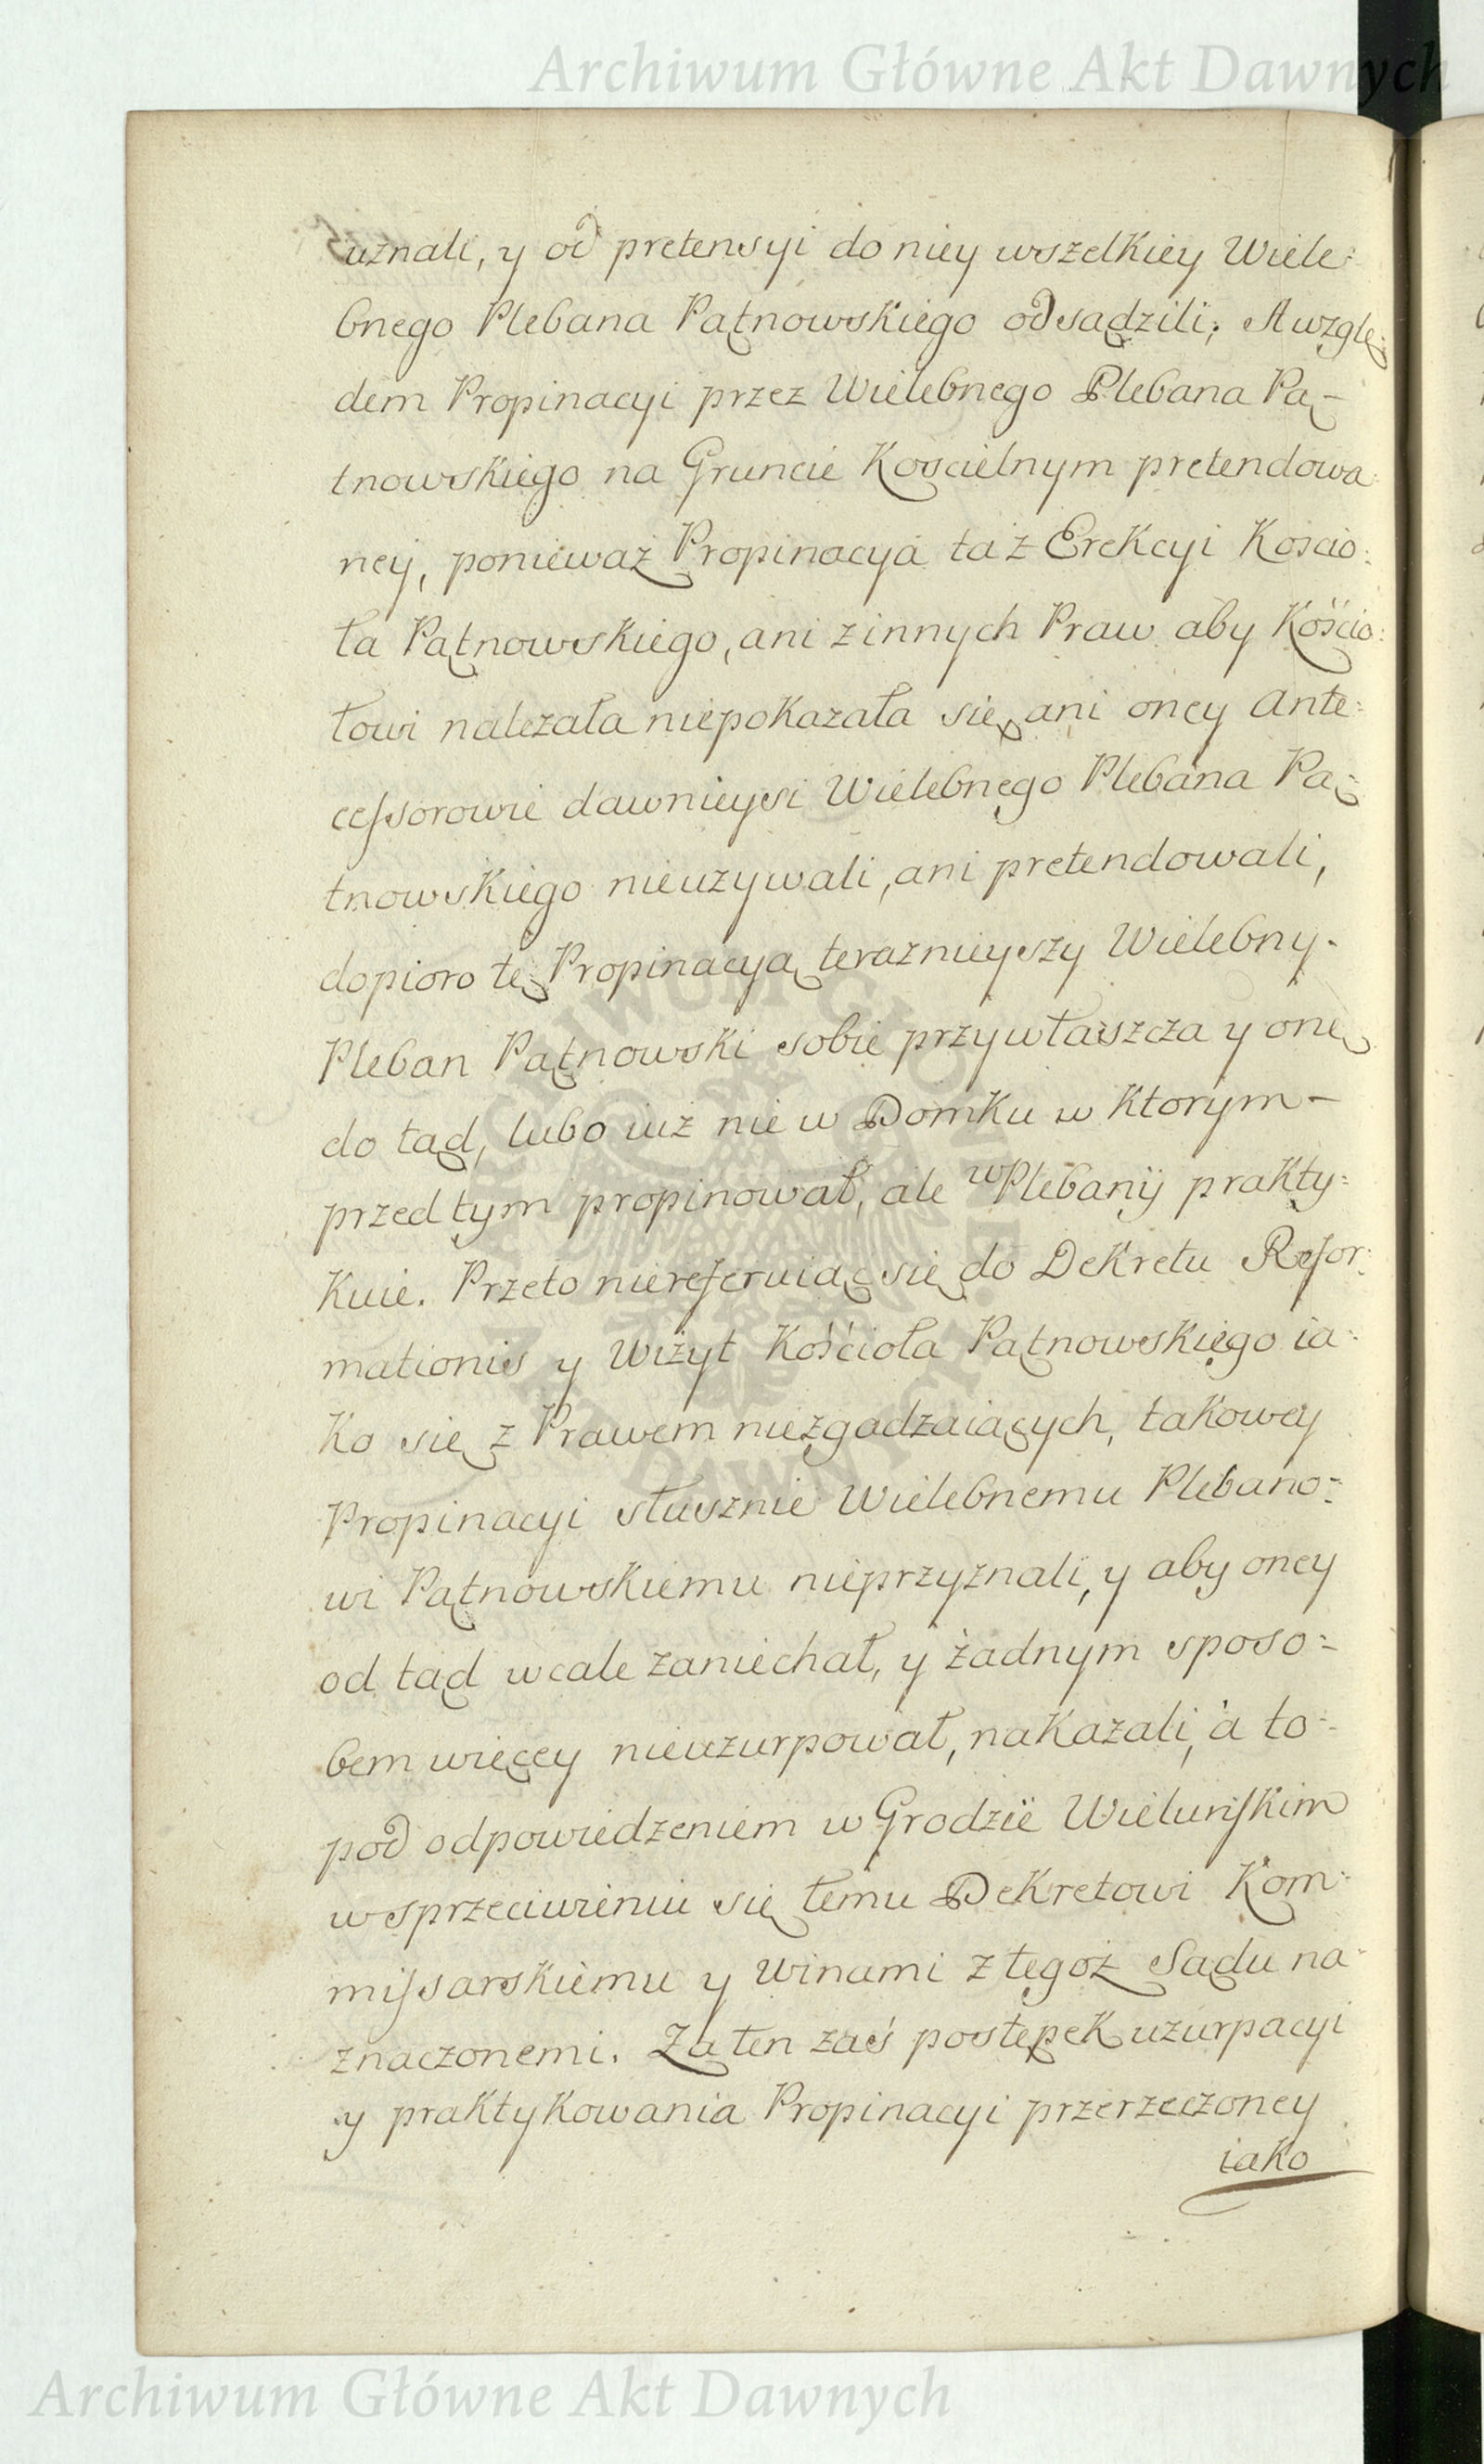 Archiwum Główne Akt Dawnych
uznali, y od pretensyi do niey wszelkiey Wiele=
bnego Plebana Pątnowskiego odsądzili; A wzglę=
dem Propinacyi przez Wielebnego Plebana Pą-
tnowskiego na Gruncie Koscielnym pretendowa=
ney, ponieważ Propinacya ta z Erekcyi Koscio=
ła Pątnowskiego, ani z innych Praw aby Kościo=
łowi nalezała niepokazała się, ani oney Ante=
cessorowie dawnieysi Wielebnego Plebana Pą=
tnowskiego nieuzywali, ani pretendowali,
dopioro tę Propinacyą teraznieyszy Wielebny
Pleban Pątnowski sobie przywłaszcza y onę
do tąd, lubo iuż nie w Domku w Ktorym-
przed tym propinował, ale w Plebanij prakty=
kuie. Przeto niereferuiąc się do Dekretu Refor=
mationis y Wizyt Kościoła Pątnowskiego ia=
ko się z Prawem niezgadzaiących, takowey
Propinacyi słusznie Wielebnemu Plebano=
wi Pątnowskiemu nieprzyznali, y aby oney
od tąd wcale zaniechał, y żadnym sposo=
bem więcey nieuzurpował, nakazali, a to=
pod odpowiedzeniem w Grodzie Wieluńskim
w sprzeciwieniu się temu Dekretowi Kom=
missarskiemu y winami z tegoż Sądu na=
znaczonemi. Za ten zaś postępek uzurpacyi
y praktykowania Propinacyi przerzeczoney
iako
ARCHIWUM GŁÓWNE AKT DAWNYCH
Archiwum Główne Akt Dawnych